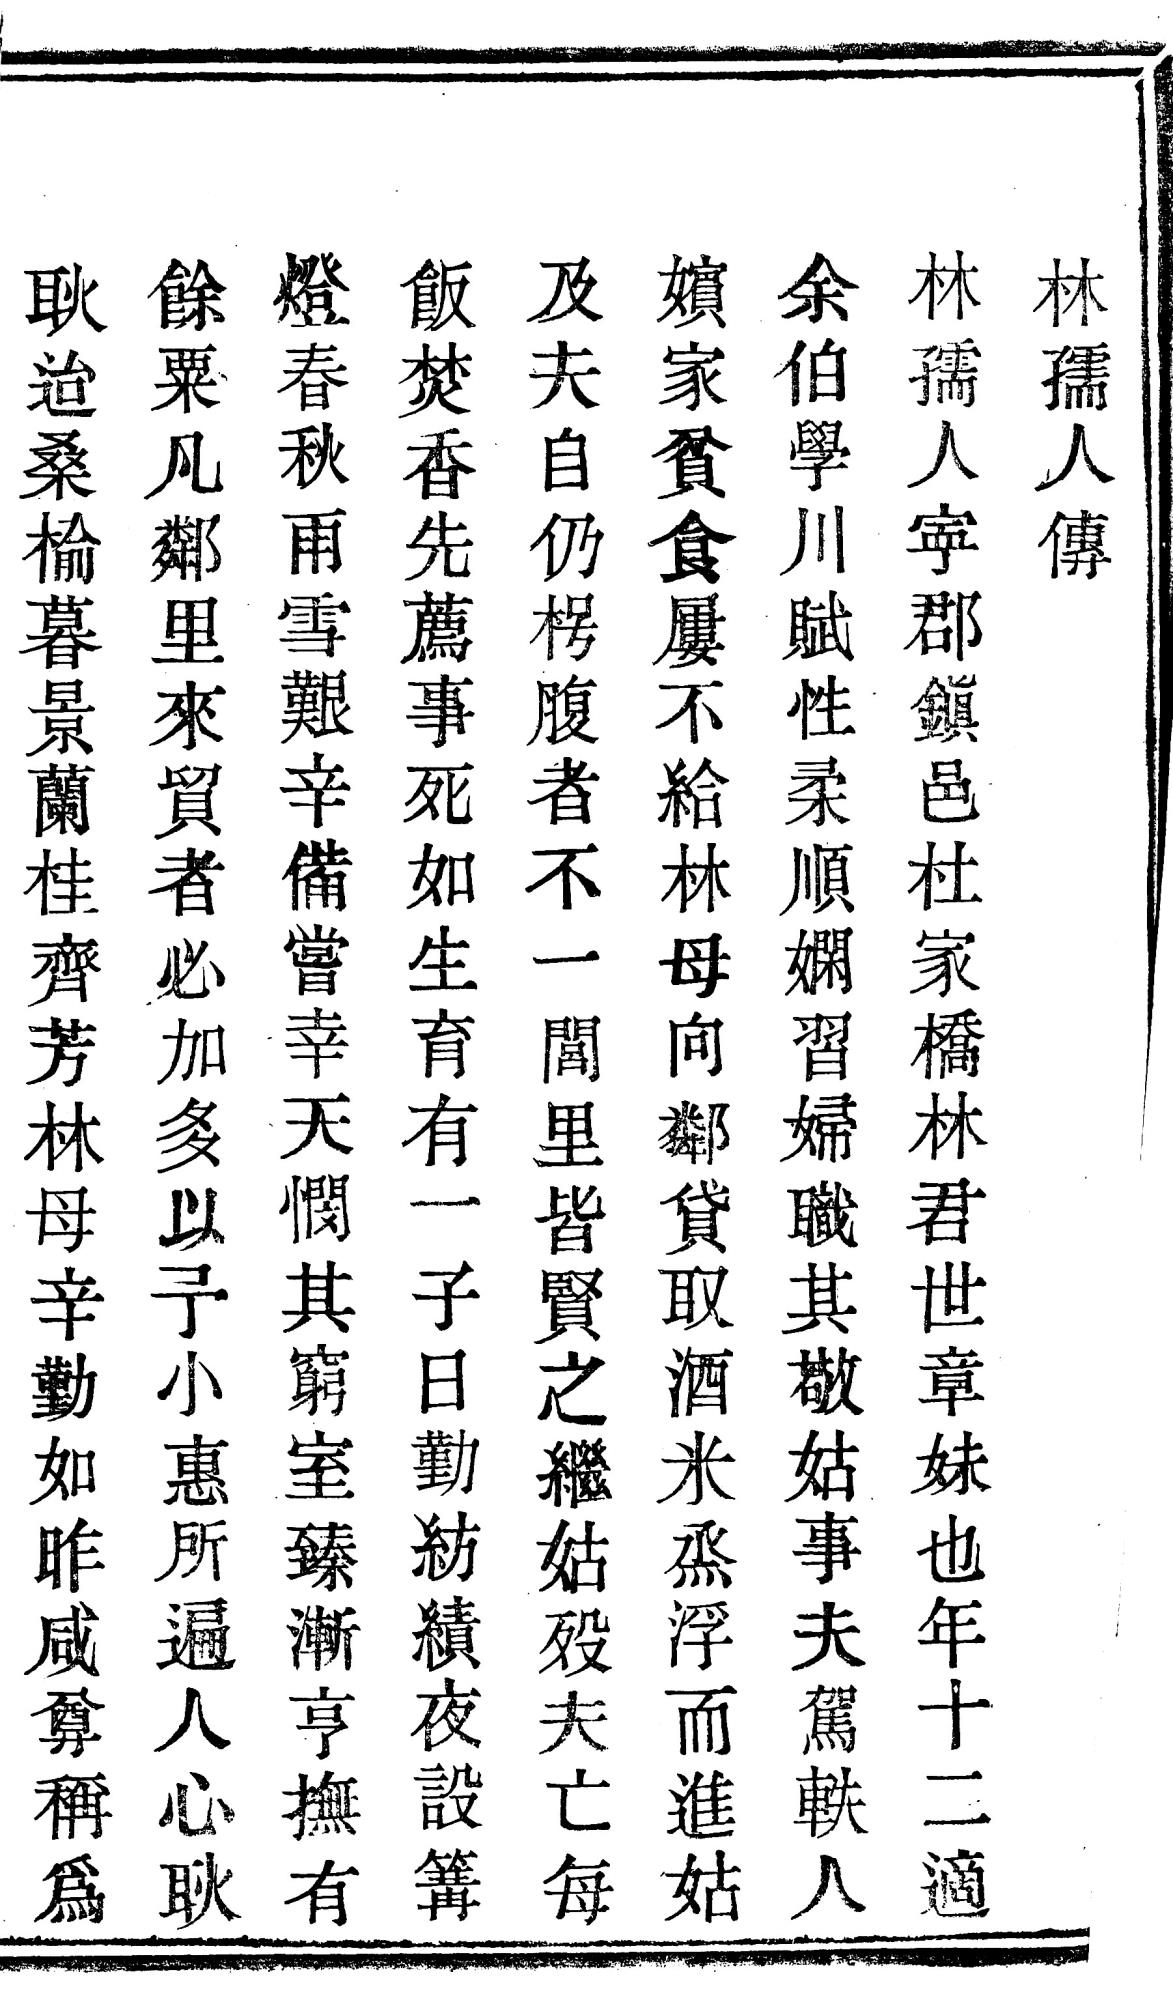 林孺人傳
林孺人寜郡鎭邑杜家橋林君世章妹也年十二適
余伯學川賦性柔順嫻習婦職其敬姑事夫駕軼人
嬪家貧食屢不給林母向鄰貸取酒米烝浮而進姑
及夫自仍枵腹者不一閭里皆賢之繼姑歿夫亡每
飯焚香先薦事死如生育有一子日勤紡績夜設篝
燈春秋雨雪艱辛備嘗幸天憫其窮室臻漸亨撫有
餘粟凡鄰里來貿者必加多以予小惠所遍人心耿
耿迨桑榆暮景蘭桂齊芳林母辛勤如昨咸尊稱爲